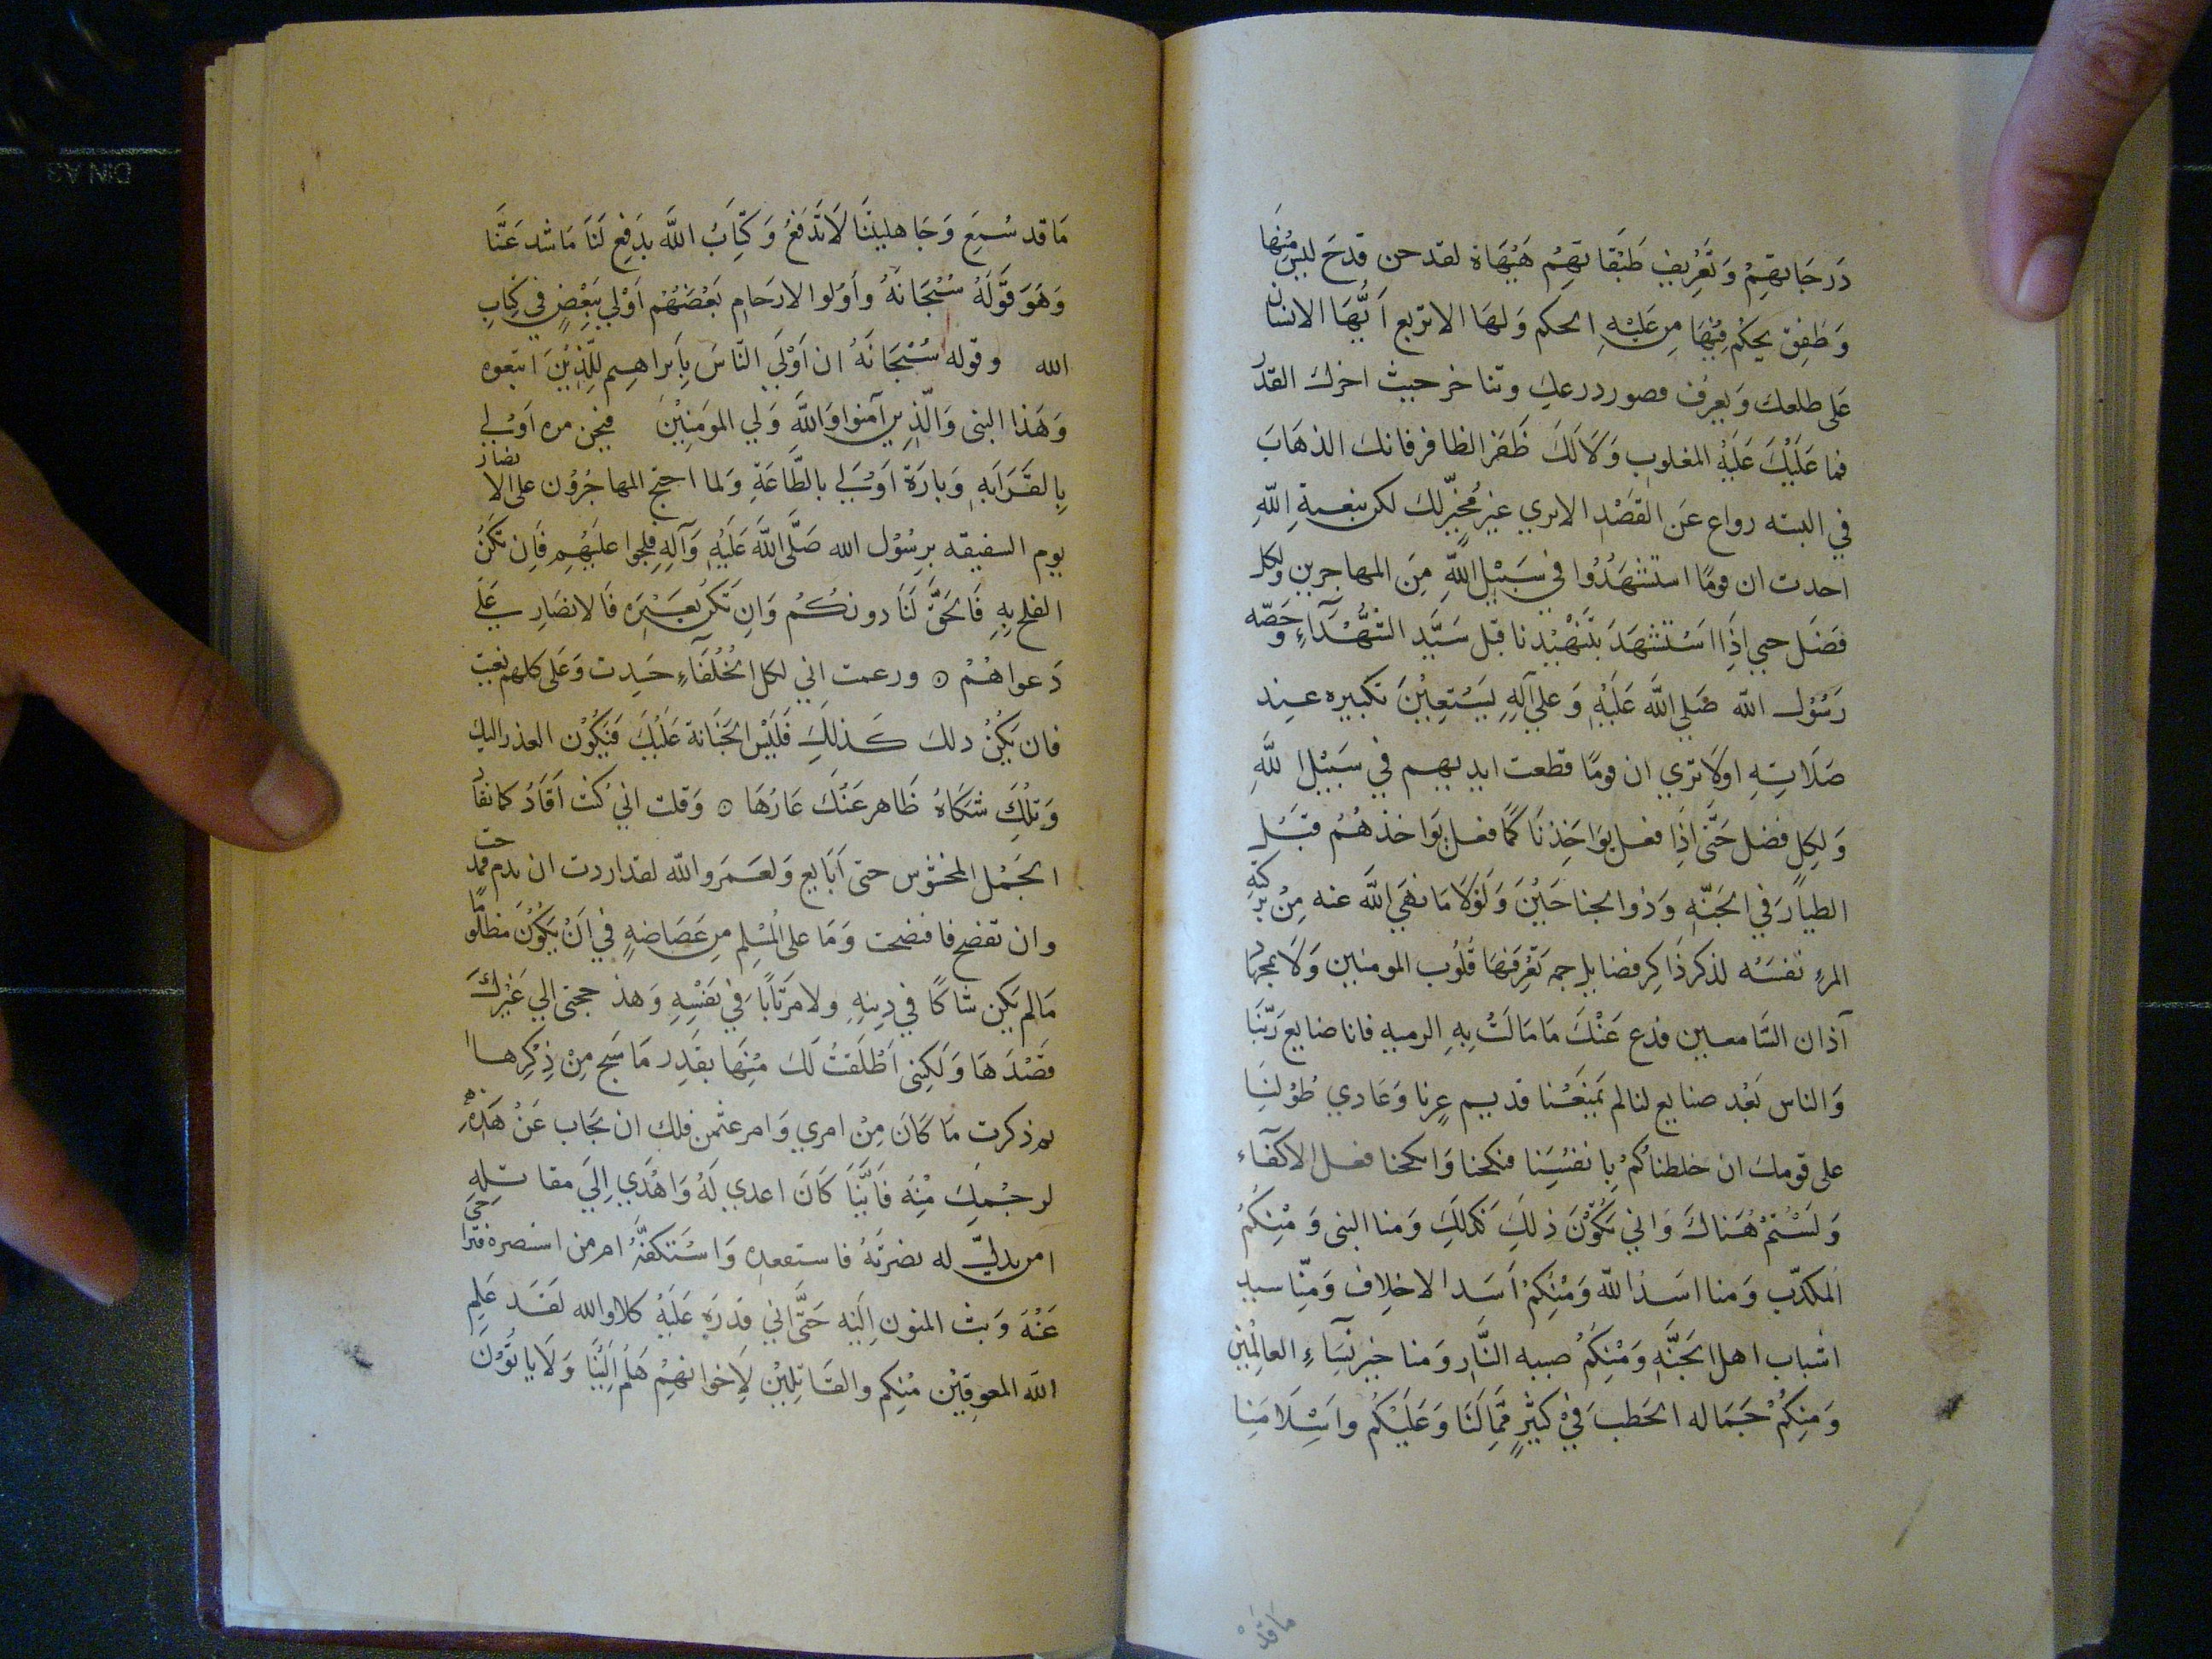 دَرجَاتهِمْ وَتَعْرِيف طَبَقاتهِمْ هَيْهَاة لقد حن قدحَ ليسَ مِنْهَا
وَطفِق يحكم فِيْهَا مِن عَلَيْهِ الحكم وَلهَا الا تربع اَيُّهَا الانسان
عَلى طلعك وَيعرف فصور درعك وتتاخر حيث اخرك القدر
فما عَلَيْكَ عَلَبَة المغلوب وَلَا لَكَ ظَفَر الظافر فانك الذهَابَ
في التيه رواع عَن القَصْدِ الا تري غيرَ مُخبِّر لك لكن بنعمةِ اللّهِ
احدت ان قومًا استشهدُوا في سَبِيْلِ اللّهِ مِنَ المهاجرين ولكل
فضَل حيي اِذَا اسْتشهَدَ بتَهْيْدنا قيل سَيّد الشهَدَآءِ وَخصّه
رَسُول اللّه صَلي اللَّه عَلَيْهِ وَعلي آلِهِ بسَبْعِيْنَ تكبيره عند
صَلَاتِهِ اولَا تري ان قومًا قطعت ايديهم في سَبِيْل اللَّهِ
وَلِكلٍ فضل حَتَّى اِذَا فعل بوَاحَدِنَا كَمَا فعل بوَاحدهُمْ قيْل
الطيارَ في الجَنّه وَذوا الجناحَيْنَ وَلَوْلَا مَا نهَي اللَّه عنه مِنْ تزكية
المرءِ نفسَه لذكر ذَاكِر فضايل جمه تَعْرِفهَا قُلُوب المومنين وَلَا تمجهَا
آذان السَّامعين فدع عَنْكَ مَا مَالَتْ بِهِ الرميه فانا صنايع رَبّنَا
وَالناس بَعْد صنايع لنا لم يَمنعَنا قديم عِزنا وَعَادي طُوْلنَا
على قومك ان خلطناكمْ بِانفسِنا فنكحنا وَانكحنا فعل الاكفآء
وَلَسْتمْ هُنَاكَ وَاني يَكُوْنَ ذلِكَ كذلك وَمنا النبي وَمِنكمْ
المكذّب وَمنا اسَد اللّه وَمنْكمْ اَسَد الاحلاف وَمنَّا سيد
اشباب اهل الجَنّه وَمْنكِمُ صبيه النَّار وَمنا خير نسَاءِ العالمِيْن
وَمنِكمْ حَمَاله الحَطب في كثيرٍ ممّا لَنَا وَعَلَيْكمْ واسْلَامنِا
ما قد
مَا قد سُمِعَ وَجَاهليتنَا لَا تَدْفَعْ وَكِتابُ اللَّه يدَفِع لنَا مَا شد عَنَّا
وَهَوَ قَوْلَهُ سُبْحَانَهُ واَوُلوا الارحَام بَعْضهُم اَوْلي بِبَعْضٍ في كِتابِ
الله وقوله سُبْحَانَهُ ان اَوْلَي النَّاسَ بِاَبراهيم للِّذيْنَ اتبَعوه
وَهَذا النبى وَالّذِين آمنوا وَاللَّه وَلي المومَنِيْنَ فنحن مره اَوْلي
بِالقَرَابَهِ وَتارَة اَوْلي بالطَّاعَةِ وَلما احتج المهاجرُوْن على الانصار
يوم السقيفه برسُوْل الله صَلَّى اللَّه عَلَيْهِ وَآلِهِ فلجوا علَيْهِم فَاِن تكَنْ
الفلح بِهِ فَالحَقّ لنَا دونكُمْ وَان تكن بغَيْره فَالانصَار عَلَي
دَعواهُمْ ۞ وزعمت اني لكل الخُلفَآءِ حَسِدت وَعَلى كلهم بَغيت
فان يَكنْ ذلك كَذلِكَ فَلَيْسَ الجَنَانة عَلَيْكَ فَيَكُوْن العذر اليك
وَتِلْكَ شكَاهْ ظَاهر عَنْكَ عَارُهَا ۞ وَقلت اني كنت اَقَادُ كما يقاد
الجَمْل المخشوش حتى اُبَايع وَلعَمْرو الله لقد اردت ان تدم فمدحت
وان تفضح فافضحت وَمَا على المُسْلِم مِن غَضَاضهٍ في اَنْ يَكُوْنَ مظلُومًا
مَا لم يكن شاكًا في دِينِهِ ولا مرَتَابًا في يَقِيْنِهِ وَهذ حجتى الي غَيْركَ
قصْدهَا وَلَكِنى اَطْلقتُ لَكَ مْنِهَا بقدِر مَا سَنح مِنْ ذِكرِها
ثم ذكرت مَا كَانَ مِنْ امري وَامر عثمن فلك ان تجَاب عَنْ هَذه
لرحْمِكَ مْنِهُ فَاَيَّنَا كَانَ اعدي لَهُ وَاهْدَي اِلَي مقاتله
امن بدل له نضرتَهُ فاستقعده وَاسْتكفَهُ امن استنصره فترَاخَى
عَنْهُ وَبث المنون اِلَيْه حَتَّى اتي قدرَه عَلَيْهِ كلا والله لقَد عَلِم
اللَه المعوِقيْن مْنِكم والقَائلِيْنَ لِاخوانِهِمْ هَلم اِلَيْنَا وَلَا ياتُوْنَ